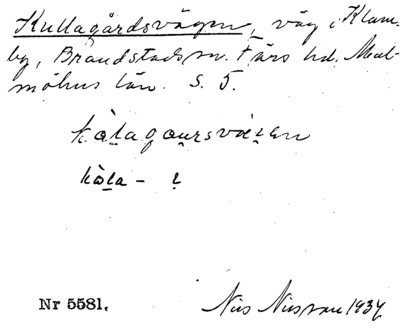 Kullagårdsvägen, väg i Klam-
by, Brandstads sn. Färs hd. Mal-
möhus län. S. 5.
kòlagaųrsvæ̀ian
kòla –
Nr 5581.
Nils Nilsson 1934